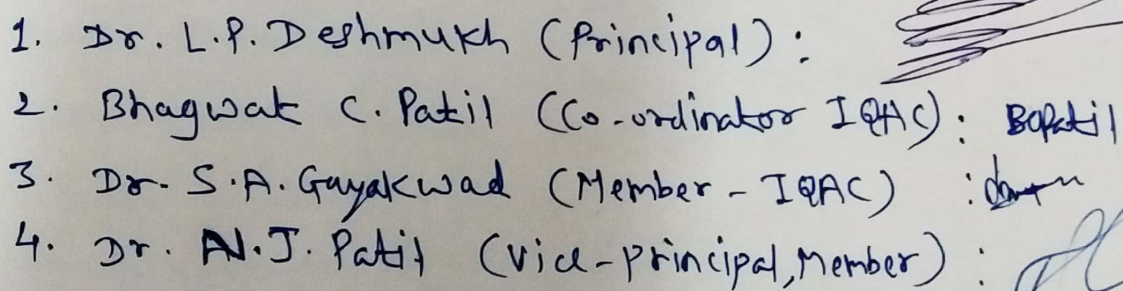 1. Dr. L.P. Deshmukh (Principal) :
2. Bhagwat C. Patil (Co-ordinator IQAC) : BCPatil
3. Dr. S.A. Gayakwad (Member - IQAC) :
4. Dr. N.J. Patil (Vice-principal, Member) :